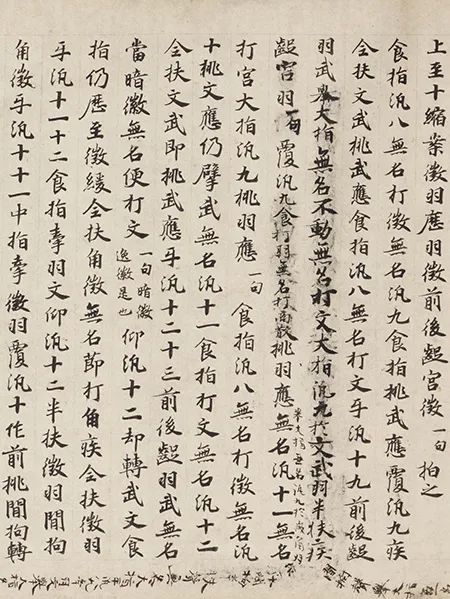 上至十縮案徵羽應羽徵前後齪宮徵一句拍之
食指汎八無名打徵無名汎九食指挑武應覆汎九疾
全扶文武挑武應食指汎八無名打文乎汎十九前後齪
羽武 大指無名不動無名打文大指汎九扵文武羽半扶疾
齪宮羽一句覆汎九食打羽無名打商散挑羽應無名汎十一無名
打宮大指汎九挑羽應一句食指汎八無名打徵無名汎
十挑文應仍擘武無名汎十一食指打文無名汎十二
全扶文武即挑武應乎汎十二十三前後齪羽武無名
當暗徽無名便打文一句暗徽逸徽是也仰汎十二却轉武文食
指仍歷至徵緩全扶角徵無名即打角疾全扶徵羽
乎汎十一十二食指牽羽文仰汎十二半扶徵羽間拘
角徵乎汎十十一中指牽徵羽覆汎十作前挑間拘轉